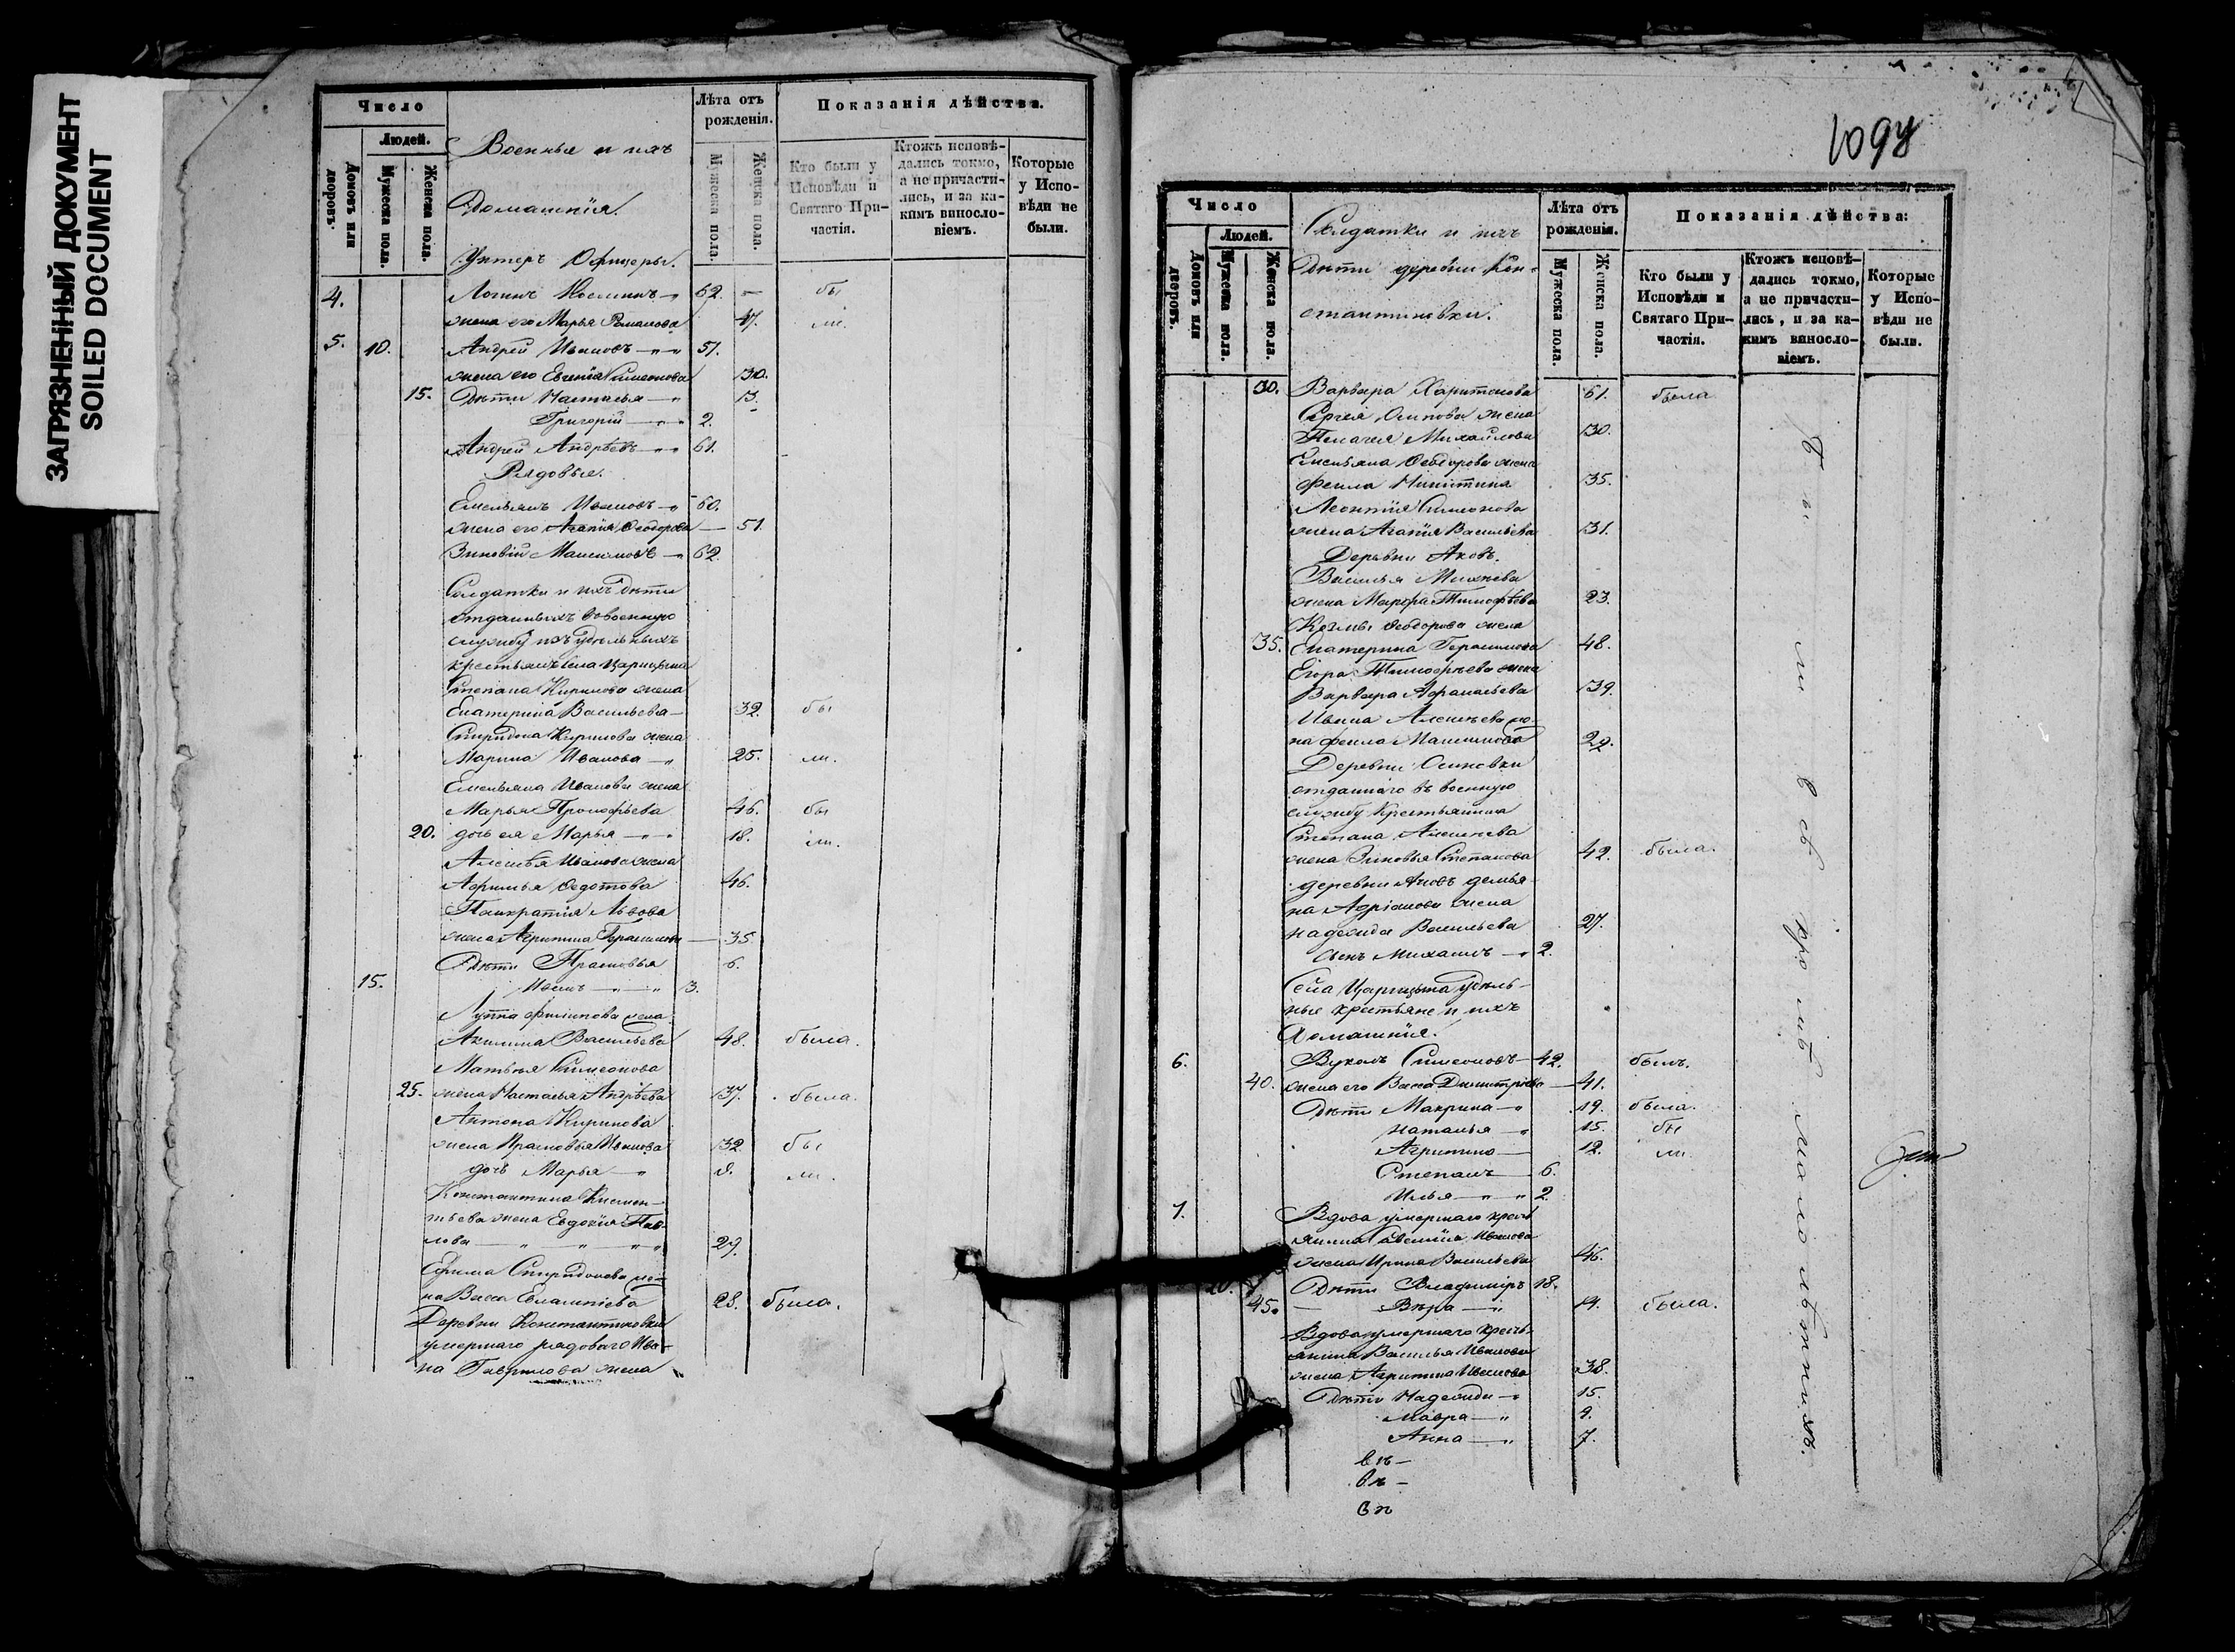 ЗАГРЯЗНЕННЫЙ ДОКУМЕНТ
SOILED DOCUMENT
Число
Людей.
Домовъ или дворовъ.
Мужеска пола.
Женска пола.
Военные и ихъ
Домашнія.
Унтеръ Офицеры.
Лѣта отъ рожденія.
Мужеска пола.
Женска пола.
Показанія дѣйства.
Кто были у Исповѣди и Святаго Причастія.
Ктожъ исповѣдались токмо, а не причастились, и за какимъ винословіемъ.
Которые у Исповѣди не были.
4. Логинъ Козминъ 62. бы
жена его Марья Романова 47. ли.
5. 10. Андрей Ивановъ 51.
жена его Евгенія Симеонова 30.
15. Дѣти Наталья 13.
Григорій 2.
Андрей Андрѣевъ 61.
Рядовые.
Емельянъ Ивановъ 60.
жена его Агапія Ѳеодорова 51
Зиновій Максимовъ 62.
Солдатки и ихъ дѣти
отданныхъ въ военную
службу изъ удѣльныхъ
крестьянъ села Царицына
Степана Кирилова жена
Екатерина Васильева 32. бы
Спиридона Кирилова жена
Марина Иванова 25. ли.
Емельяна Иванова жена
Марья Прокофьева 46. бы
20. дочь ея Марья 18. ли.
Алексѣя Иванова жена
Афимья Ѳедотова 46.
Панкратія Львова
жена Агрипина Герасимова 35.
Дѣти Прасковья 6.
15. Иванъ 3.
Луппа Филипова жена
Акилина Васильева 48. была.
Матвѣя Симеонова
25. жена Наталья Андрѣева 37. была.
Антона Кирилова
жена Прасковья Иванова 32. бы
дочь Марья 8. ли.
Константина Климен-
тьева жена Евдокія Пав-
лова 29.
Ефима Спиридонова же-
на Васса Евлампіева 28. была.
Деревни Константиновки
умершаго рядоваго Ива-
на Гаврилова жена
Число
Людей.
Домовъ или дворовъ.
Мужеска пола.
Женска пола.
Солдатки и ихъ
дѣти деревни Кон-
стантиновки.
Лѣта отъ рожденія.
Мужеска пола.
Женска пола.
Показанія дѣйства:
Кто были у Исповѣди и Святаго Причастія.
Ктожъ исповѣдались токмо, а не причастились, и за какимъ винословіемъ.
Которые у Исповѣди не были.
30. Варвара Харитонова 61. была
Сергѣя Осипова жена
Пелагея Михайлова 30.
Емельяна Ѳеодорова жена
Фекла Никитина 35.
Леонтія Симеонова
жена Агапія Васильева 31.
Деревни Аковъ.
Василья Михѣева
жена Марфа Тимофѣева 23.
Козмы Ѳеодорова жена
35. Екатерина Герасимова 48.
Егора Тимофѣева жена
Варвара Афанасьева 39.
Ивана Алексѣева же-
на Фекла Максимова 29.
Деревни Осиновки
отданнаго въ военную
службу крестьянина
Степана Алексѣева
жена Зиновья Степанова 42. была.
деревни Аковъ Демья-
на Адріанова жена
Надежда Васильева 27.
сынъ Михаилъ 2.
Села Царицына удѣль-
ные крестьяне и ихъ
домашнія.
6. Вуколъ Симеоновъ 42. былъ.
40. жена его Васса Димитріева 41.
Дѣти Макрина 19. была.
Наталья 15. бы
Агрипина 12. ли.
Степанъ 6.
Илья 2.
7. Вдова умершаго кресть
янина Савелія Иванова
жена Ирина Васильева 46.
20. Дѣти Владиміръ 18.
45. Вѣра 14. была.
Вдова умершаго кресть-
янина Василья Иванова
жена Агрипина Иванова 38.
Дѣти Надежда 15.
Мавра 9.
Анна 7.